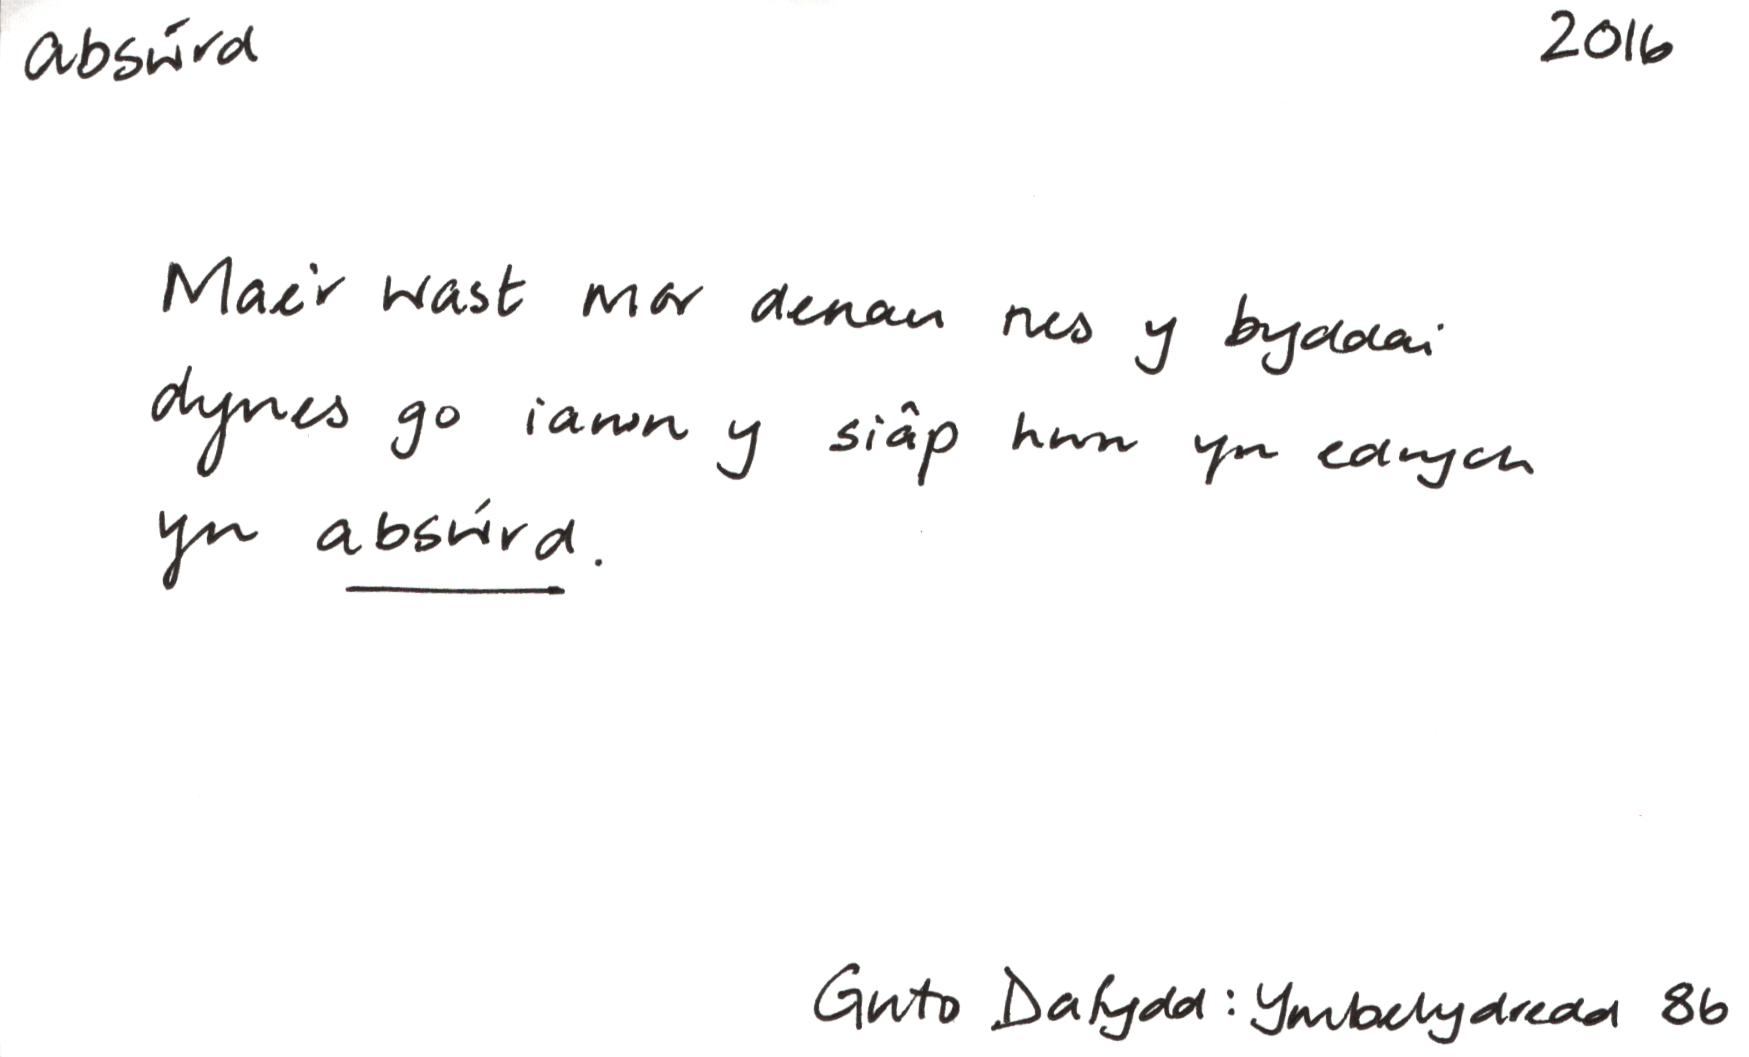 absẃrd 2016
Mae'r wast mor denau nes y byddai
dynes go iawn y siâp hwn yn edrych
yn absẃrd.
Guto Dafydd: Ymbelydredd 86